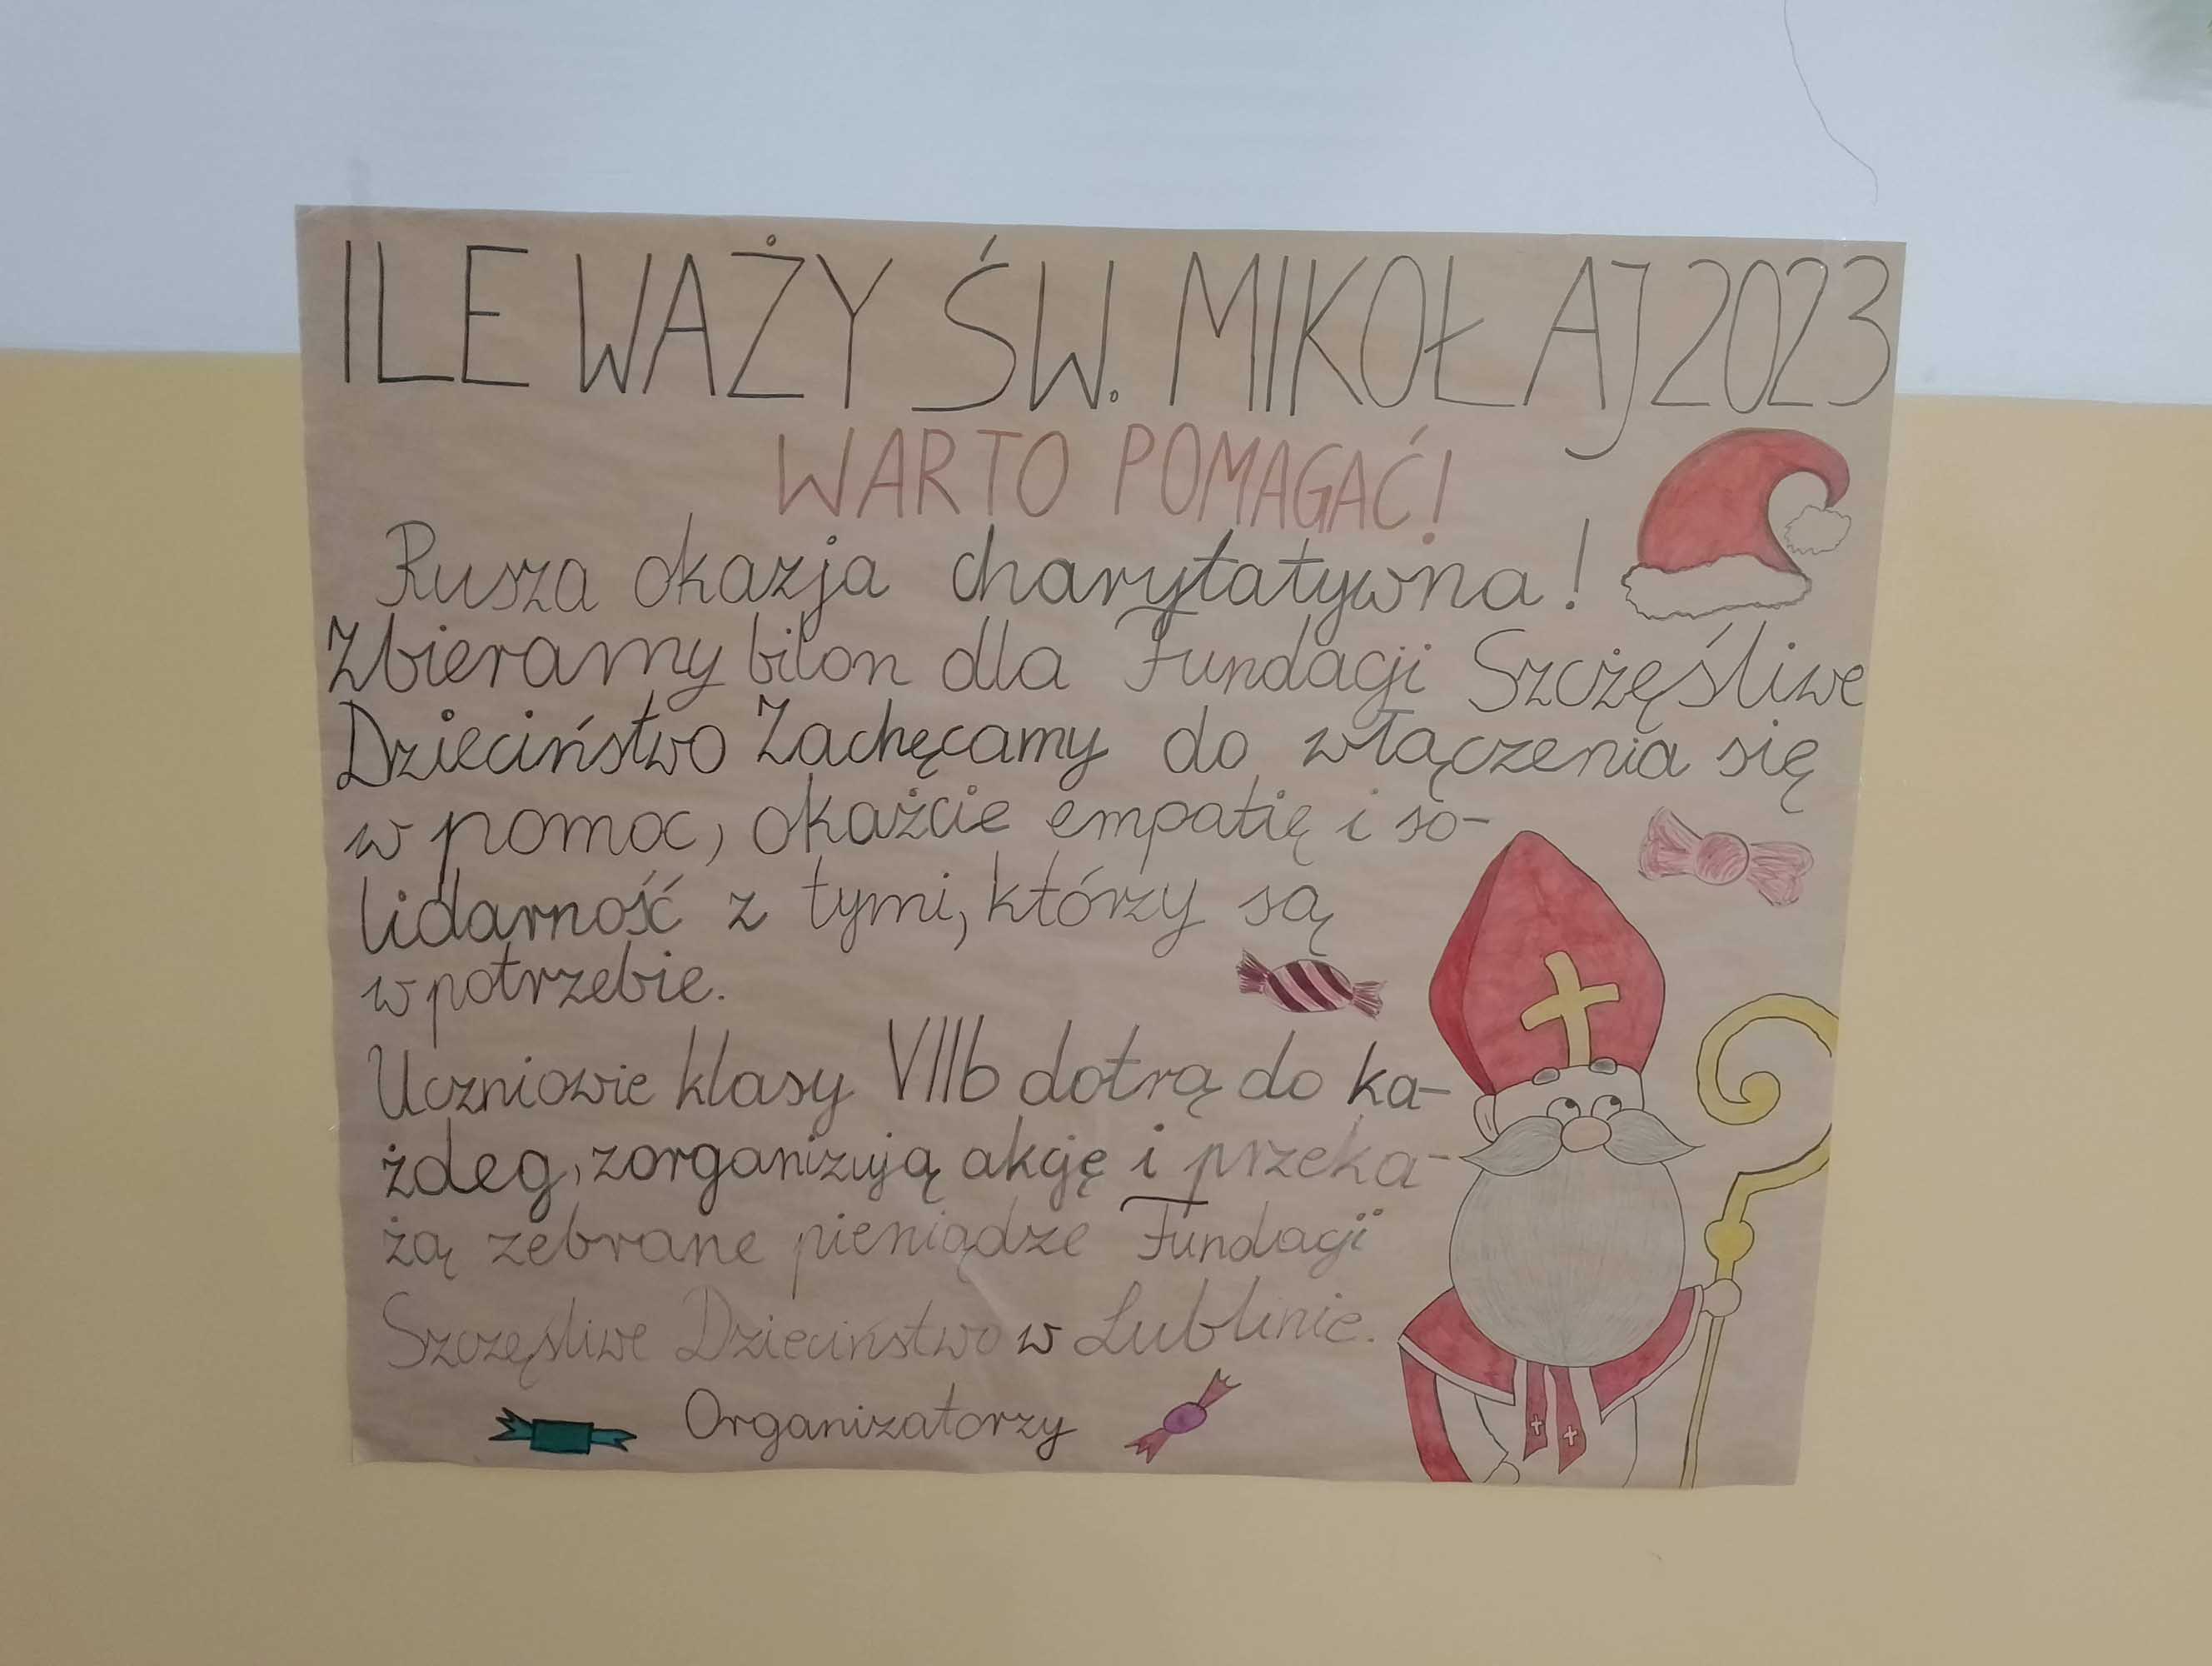 ILE WAŻY ŚW. MIKOŁAJ 2023
WARTO POMAGAĆ!
Rusza okazja charytatywna!
Zbieramy bilon dla Fundacji Szczężśliwe
Dzieciństwo Zachęcamy do włączenia się
w pomoc, okażcie empatię i so-
lidarność z tymi, którzy są
w potrzebie.
Uczniowie klasy VIIb dotrą do ka-
żdeg, zorganizują akcję i przeka-
żą zebrane pieniądze Fundacji
Szczęśliwe Dzieciństwo w Lublinie.
Organizatorzy